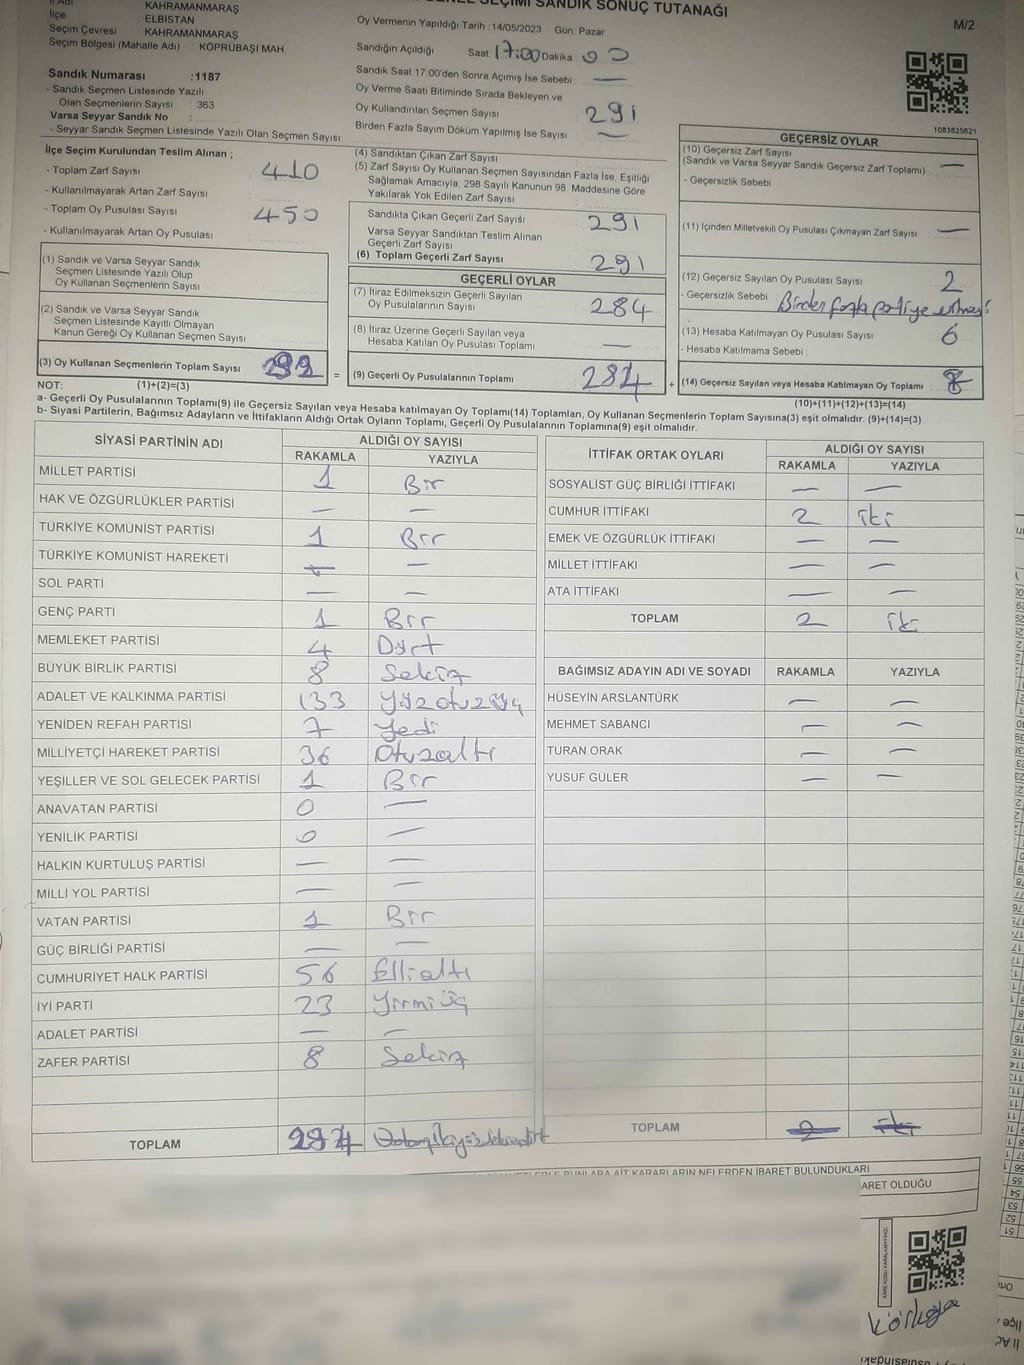 SANDIK SONUÇ TUTANAĞI
M/2
KAHRAMANMARAŞ
İlçe ELBİSTAN
Seçim Çevresi KAHRAMANMARAŞ
Seçim Bölgesi (Mahalle Adı) : KÖPRÜBAŞI MAH.
Oy Vermenin Yapıldığı Tarih :14/05/2023 Gün: Pazar
Sandığın Açıldığı Saat 17:00 Dakika : 00
Sandık Saat 17:00'den Sonra Açımış İse Sebebi : —
Oy Verme Saati Bitiminde Sırada Bekleyen ve
Oy Kullandırılan Seçmen Sayısı 291
Birden Fazla Sayım Döküm Yapılmış İse Sayısı —
Sandık Numarası :1187
- Sandık Seçmen Listesinde Yazılı
Olan Seçmenlerin Sayısı : 363
Varsa Seyyar Sandık No :
- Seyyar Sandık Seçmen Listesinde Yazılı Olan Seçmen Sayısı
1083825621
İlçe Seçim Kurulundan Teslim Alınan ;
- Toplam Zarf Sayısı 410
- Kullanılmayarak Artan Zarf Sayısı
- Toplam Oy Pusulası Sayısı 450
- Kullanılmayarak Artan Oy Pusulası
(1) Sandık ve Varsa Seyyar Sandık
Seçmen Listesinde Yazılı Olup
Oy Kullanan Seçmenlerin Sayısı
(2) Sandık ve Varsa Seyyar Sandık
Seçmen Listesinde Kayıtlı Olmayan
Kanun Gereği Oy Kullanan Seçmen Sayısı
(3) Oy Kullanan Seçmenlerin Toplam Sayısı
(4) Sandıktan Çıkan Zarf Sayısı
(5) Zarf Sayısı Oy Kullanan Seçmen Sayısından Fazla İse, Eşitliği
Sağlamak Amacıyla, 298 Sayılı Kanunun 98. Maddesine Göre
Yakılarak Yok Edilen Zarf Sayısı
Sandıkta Çıkan Geçerli Zarf Sayısı 291
Varsa Seyyar Sandıktan Teslim Alınan
Geçerli Zarf Sayısı
(6) Toplam Geçerli Zarf Sayısı 291
GEÇERLİ OYLAR
(7) İtiraz Edilmeksizin Geçerli Sayılan
Oy Pusulalarının Sayısı 284
(8) İtiraz Üzerine Geçerli Sayılan veya
Hesaba Katılan Oy Pusulası Toplamı —
= (9) Geçerli Oy Pusulalarının Toplamı 284
GEÇERSİZ OYLAR
(10) Geçersiz Zarf Sayısı
(Sandık ve Varsa Seyyar Sandık Geçersiz Zarf Toplamı) : —
- Geçersizlik Sebebi
(11) İçinden Milletvekili Oy Pusulası Çıkmayan Zarf Sayısı —
(12) Geçersiz Sayılan Oy Pusulası Sayısı 2
- Geçersizlik Sebebi Birden fazla partiye
(13) Hesaba Katılmayan Oy Pusulası Sayısı 6
- Hesaba Katılmama Sebebi :
+ (14) Geçersiz Sayılan veya Hesaba Katılmayan Oy Toplamı 8
NOT: (1)+(2)=(3)
(10)+(11)+(12)+(13)=(14)
a- Geçerli Oy Pusulasının Toplamı(9) ile Geçersiz Sayılan veya Hesaba katılmayan Oy Toplamı(14) Toplamları, Oy Kullanan Seçmenlerin Toplam Sayısına(3) eşit olmalıdır. (9)+(14)=(3)
b- Siyasi Partilerin, Bağımsız Adayların ve İttifakların Aldığı Ortak Oyların Toplamı, Geçerli Oy Pusulalarının Toplamına(9) eşit olmalıdır.
SİYASİ PARTİNİN ADI ALDIĞI OY SAYISI
RAKAMLA YAZIYLA
MİLLET PARTİSİ 1 Bir
HAK VE ÖZGÜRLÜKLER PARTİSİ — —
TÜRKİYE KOMÜNİST PARTİSİ 1 Bir
TÜRKİYE KOMÜNİST HAREKETİ — —
SOL PARTİ — —
GENÇ PARTİ 1 Bir
MEMLEKET PARTİSİ 4 Dört
BÜYÜK BİRLİK PARTİSİ 8 Sekiz
ADALET VE KALKINMA PARTİSİ 133 Yüzotuzüç
YENİDEN REFAH PARTİSİ 7 Yedi
MİLLİYETÇİ HAREKET PARTİSİ 36 Otuzaltı
YEŞİLLER VE SOL GELECEK PARTİSİ 1 Bir
ANAVATAN PARTİSİ 0 —
YENİLİK PARTİSİ 0 —
HALKIN KURTULUŞ PARTİSİ — —
MİLLİ YOL PARTİSİ — —
VATAN PARTİSİ 1 Bir
GÜÇ BİRLİĞİ PARTİSİ — —
CUMHURİYET HALK PARTİSİ 56 Ellialtı
İYİ PARTİ 23 Yirmiüç
ADALET PARTİSİ — —
ZAFER PARTİSİ 8 Sekiz
TOPLAM
İTTİFAK ORTAK OYLARI ALDIĞI OY SAYISI
RAKAMLA YAZIYLA
SOSYALİST GÜÇ BİRLİĞİ İTTİFAKI — —
CUMHUR İTTİFAKI 2 iki
EMEK VE ÖZGÜRLÜK İTTİFAKI — —
MİLLET İTTİFAKI — —
ATA İTTİFAKI — —
TOPLAM 2 iki
BAĞIMSIZ ADAYIN ADI VE SOYADI RAKAMLA YAZIYLA
HÜSEYİN ARSLANTÜRK — —
MEHMET SABANCI — —
TURAN ORAK — —
YUSUF GÜLER — —
TOPLAM 2 iki
BUNLARA AİT KARARLARIN NELERDEN İBARET BULUNDUKLARI
ARET OLDUĞU